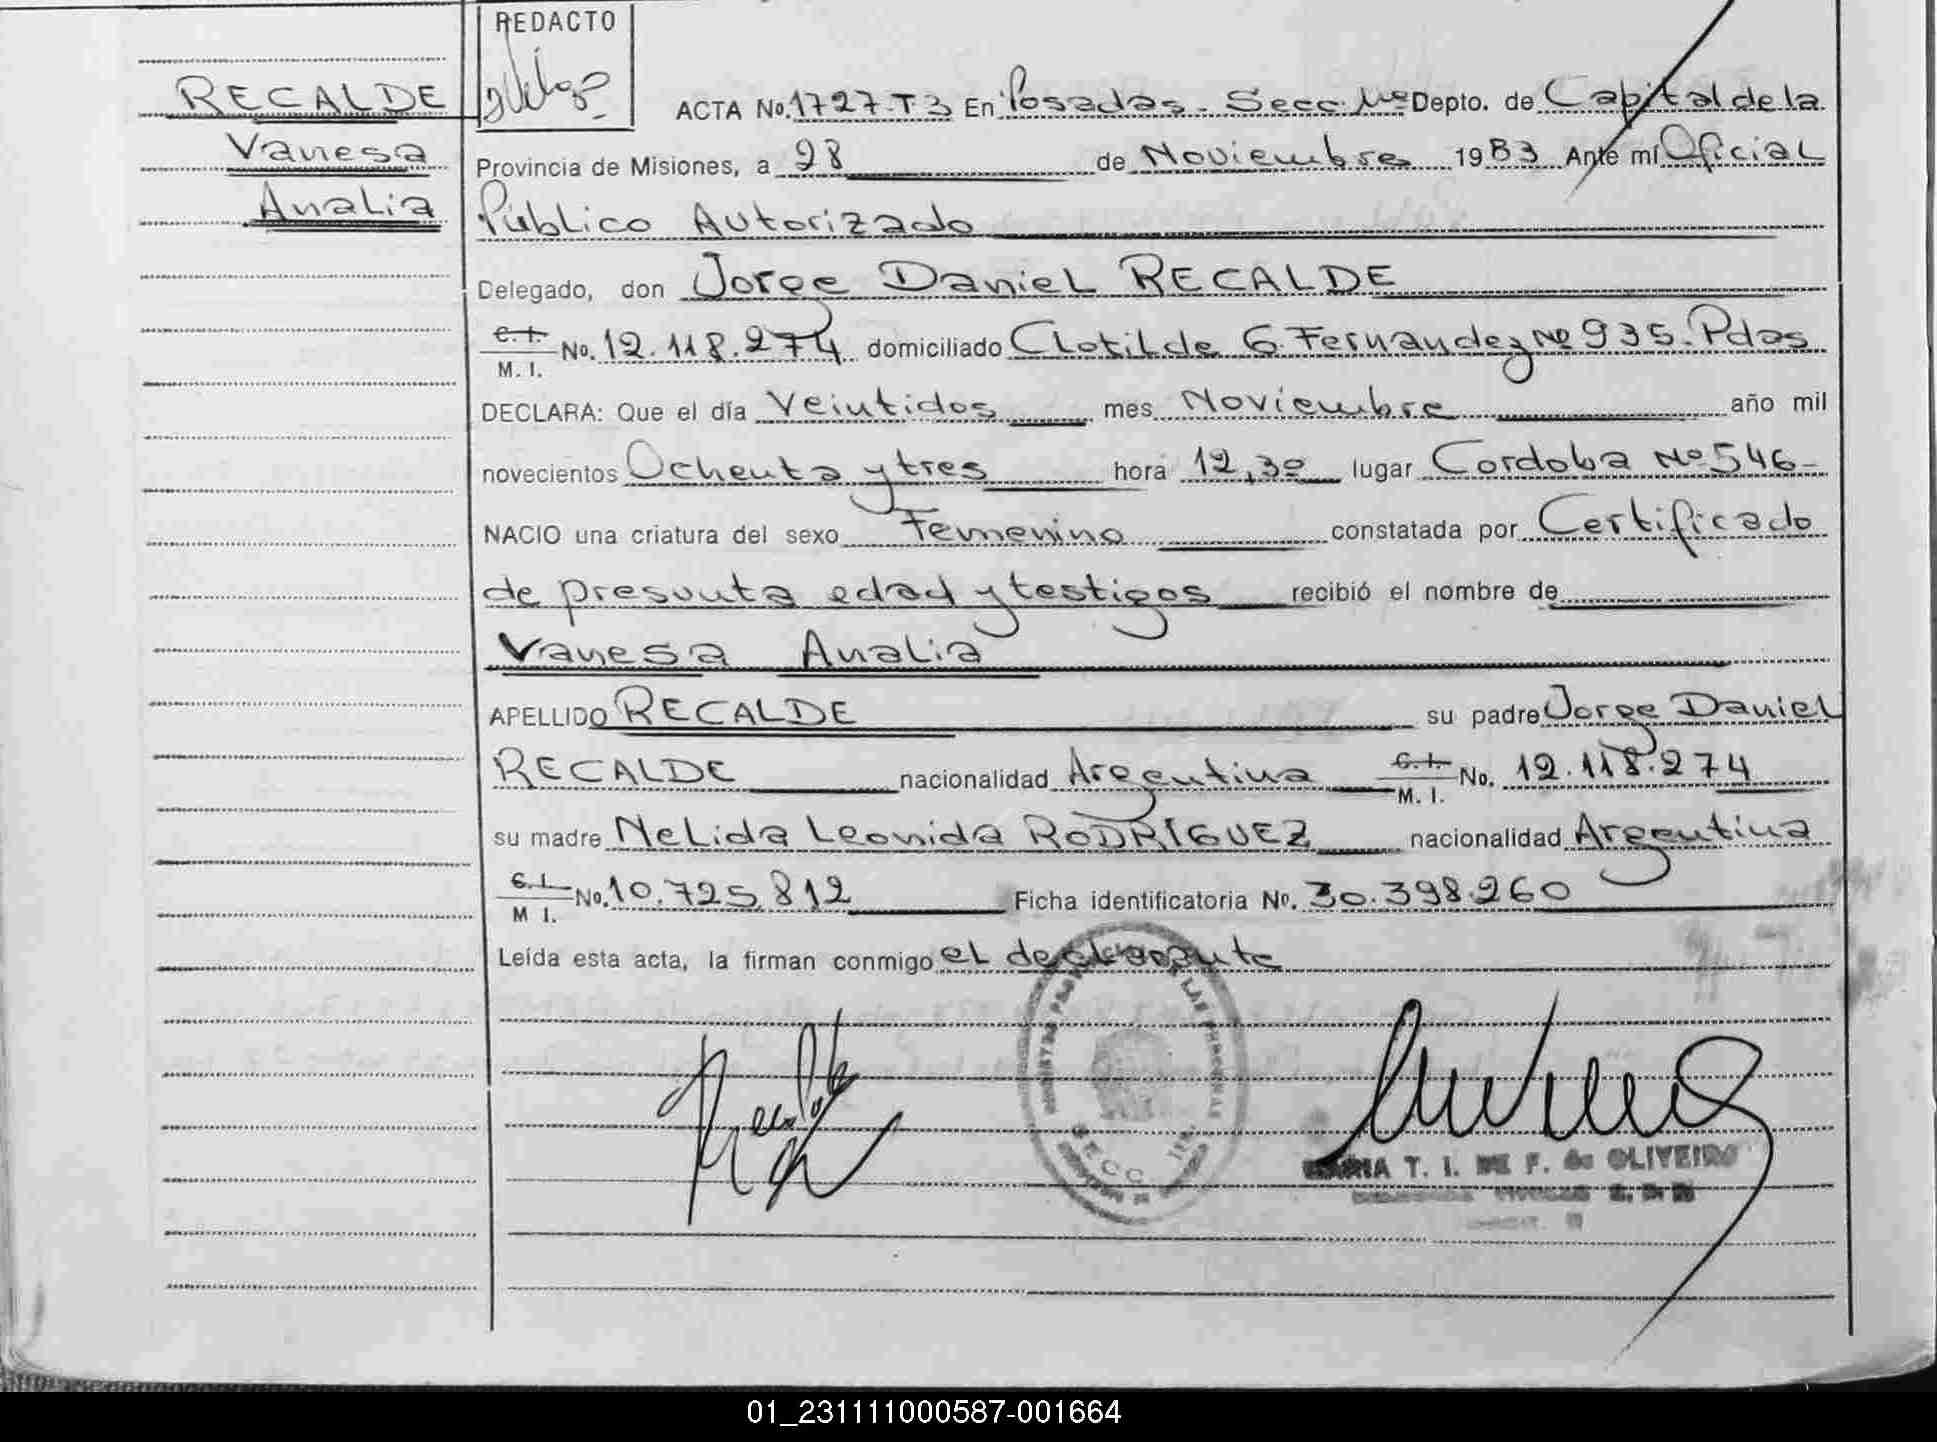 REDACTO
RECALDE
Vanesa
Analia
ACTA No. 1727-T3 En Posadas - Secc. 1ª Depto. de Capital de la
Provincia de Misiones, a 28 de Noviembre 1983 Ante mí Oficial
Público Autorizado
Delegado, don Jorge Daniel RECALDE
C. I. / M. I. No. 12.118.274 domiciliado Clotilde G. Fernandez Nº 935. Pdas
DECLARA: Que el día Veintidos mes Noviembre año mil
novecientos Ochenta y tres hora 12,30 lugar Cordoba Nº 546-
NACIO una criatura del sexo Femenino constatada por Certificado
de presunta edad y testigos recibió el nombre de
Vanesa Analia
APELLIDO RECALDE su padre Jorge Daniel
RECALDE nacionalidad Argentina C. I. / M. I. No. 12.118.274
su madre Nelida Leonida RODRÍGUEZ nacionalidad Argentina
C. I. / M I. No. 10.725.812 Ficha identificatoria No. 30.398.260
Leída esta acta, la firman conmigo el declarante
Recalde
SECC. 1ra.
MARIA T. I. DE F. de OLIVEIRA
01_231111000587-001664